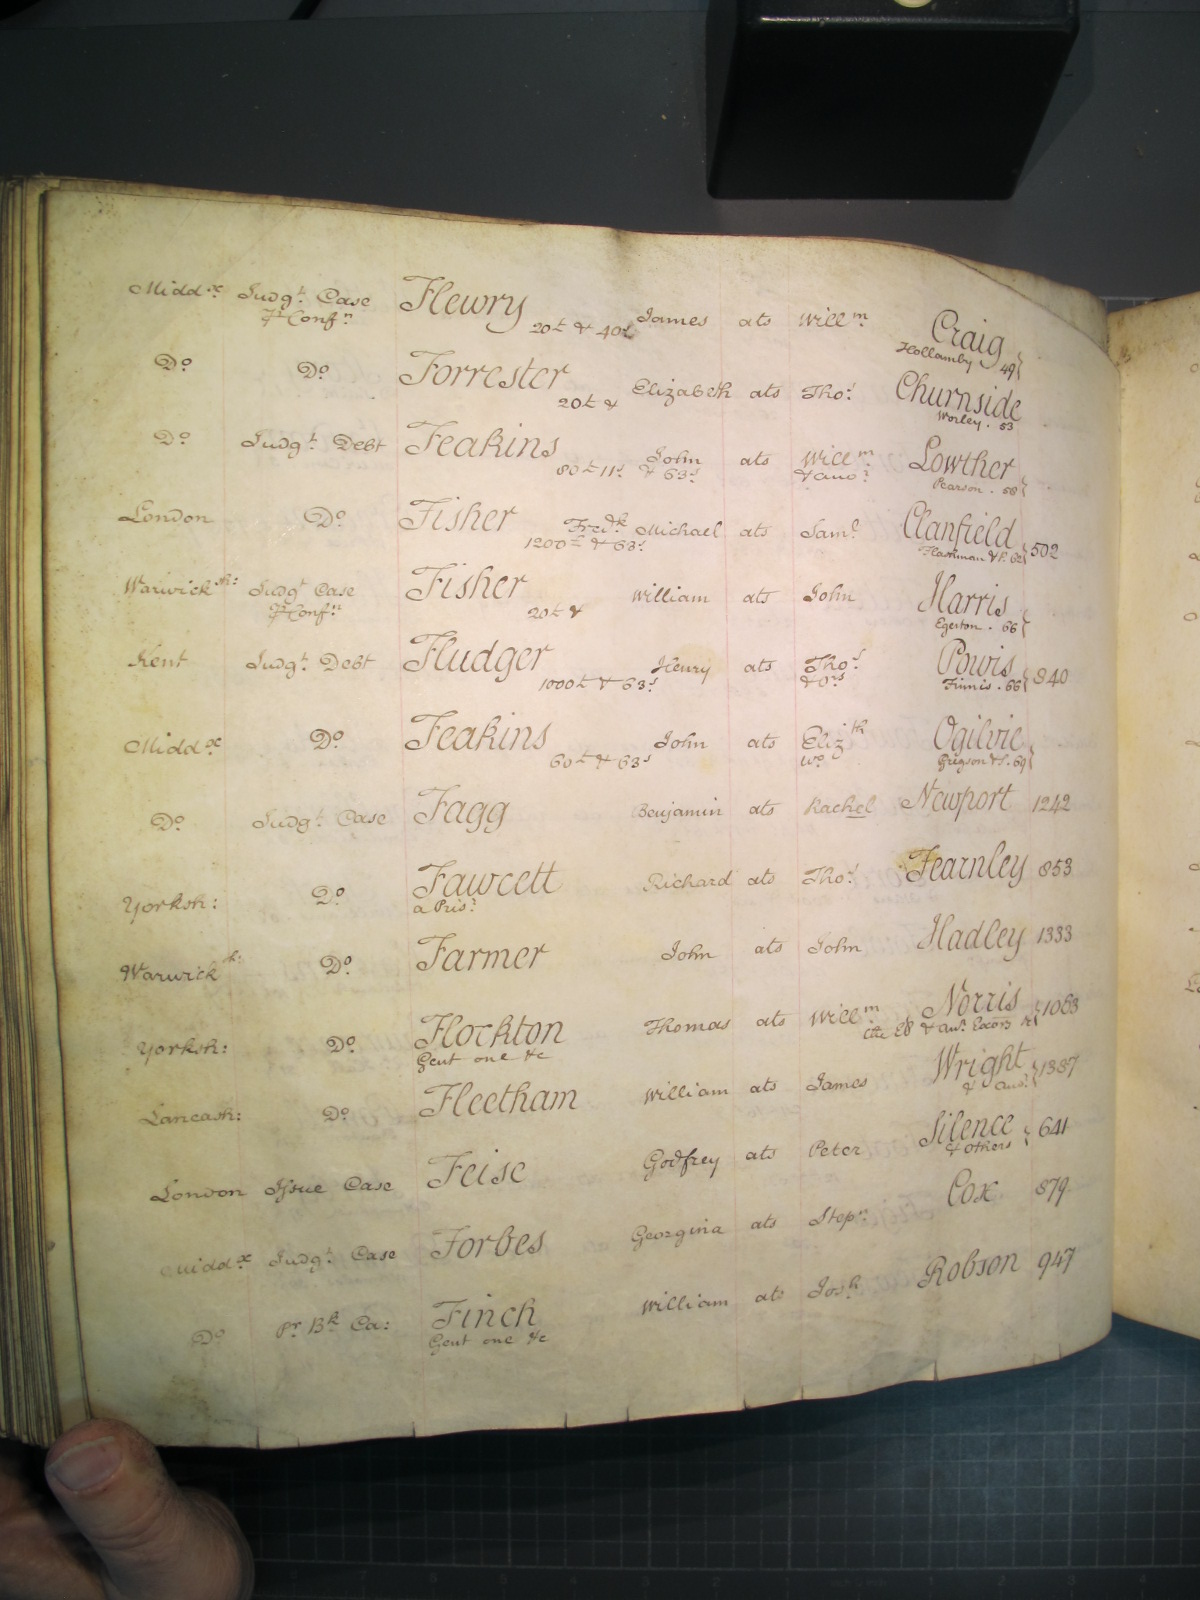 Midd.x Judg.t Case Flewry James ats Will.m Craig
Conf.n 20£ & 40s Hollamby . 49
D.o D.o Forrester Elizabeth ats Tho.s Churnside
20£ & Worley . 53
D.o Judg.t Debt Feakins John ats Will.m Lowther
80£ 11s & 63s & ano.r Pearson . 58
London D.o Fisher Fred.k Michael ats Sam.l Clanfield 502
1200£ & 63s
Warwicksh: Judg.t Case Fisher William ats John Harris
Conf.n 20£ & Egerton . 66
Kent Judg.t Debt Fludger Henry ats Tho.s Powis 840
1000£ & 63s & ors Finnis . 66
Midd.x D.o Feakins John ats Eliz.th Ogilvie
60£ & 63s wo. Grigson & S. 69
D.o Judg.t Case Fagg Benjamin ats Rachel Newport 1242
Yorksh: D.o Fawcett Richard ats Tho.s Fearnley 853
a Pris.r
Warwick D.o Farmer John ats John Hadley 1333
Yorksh: D.o Flockton Thomas ats Will.m Norris 1083
Gent one &c
Lancash: D.o Fleetham William ats James Wright 1387
& ano.r
London Issue Case Feise Godfrey ats Peter Silence 641
& others
Midd.x Judg.t Case Forbes Georgina ats Step.n Cox 879
D.o pr. B.k Ca: Finch William ats Jos.h Robson 947
Gent one &c